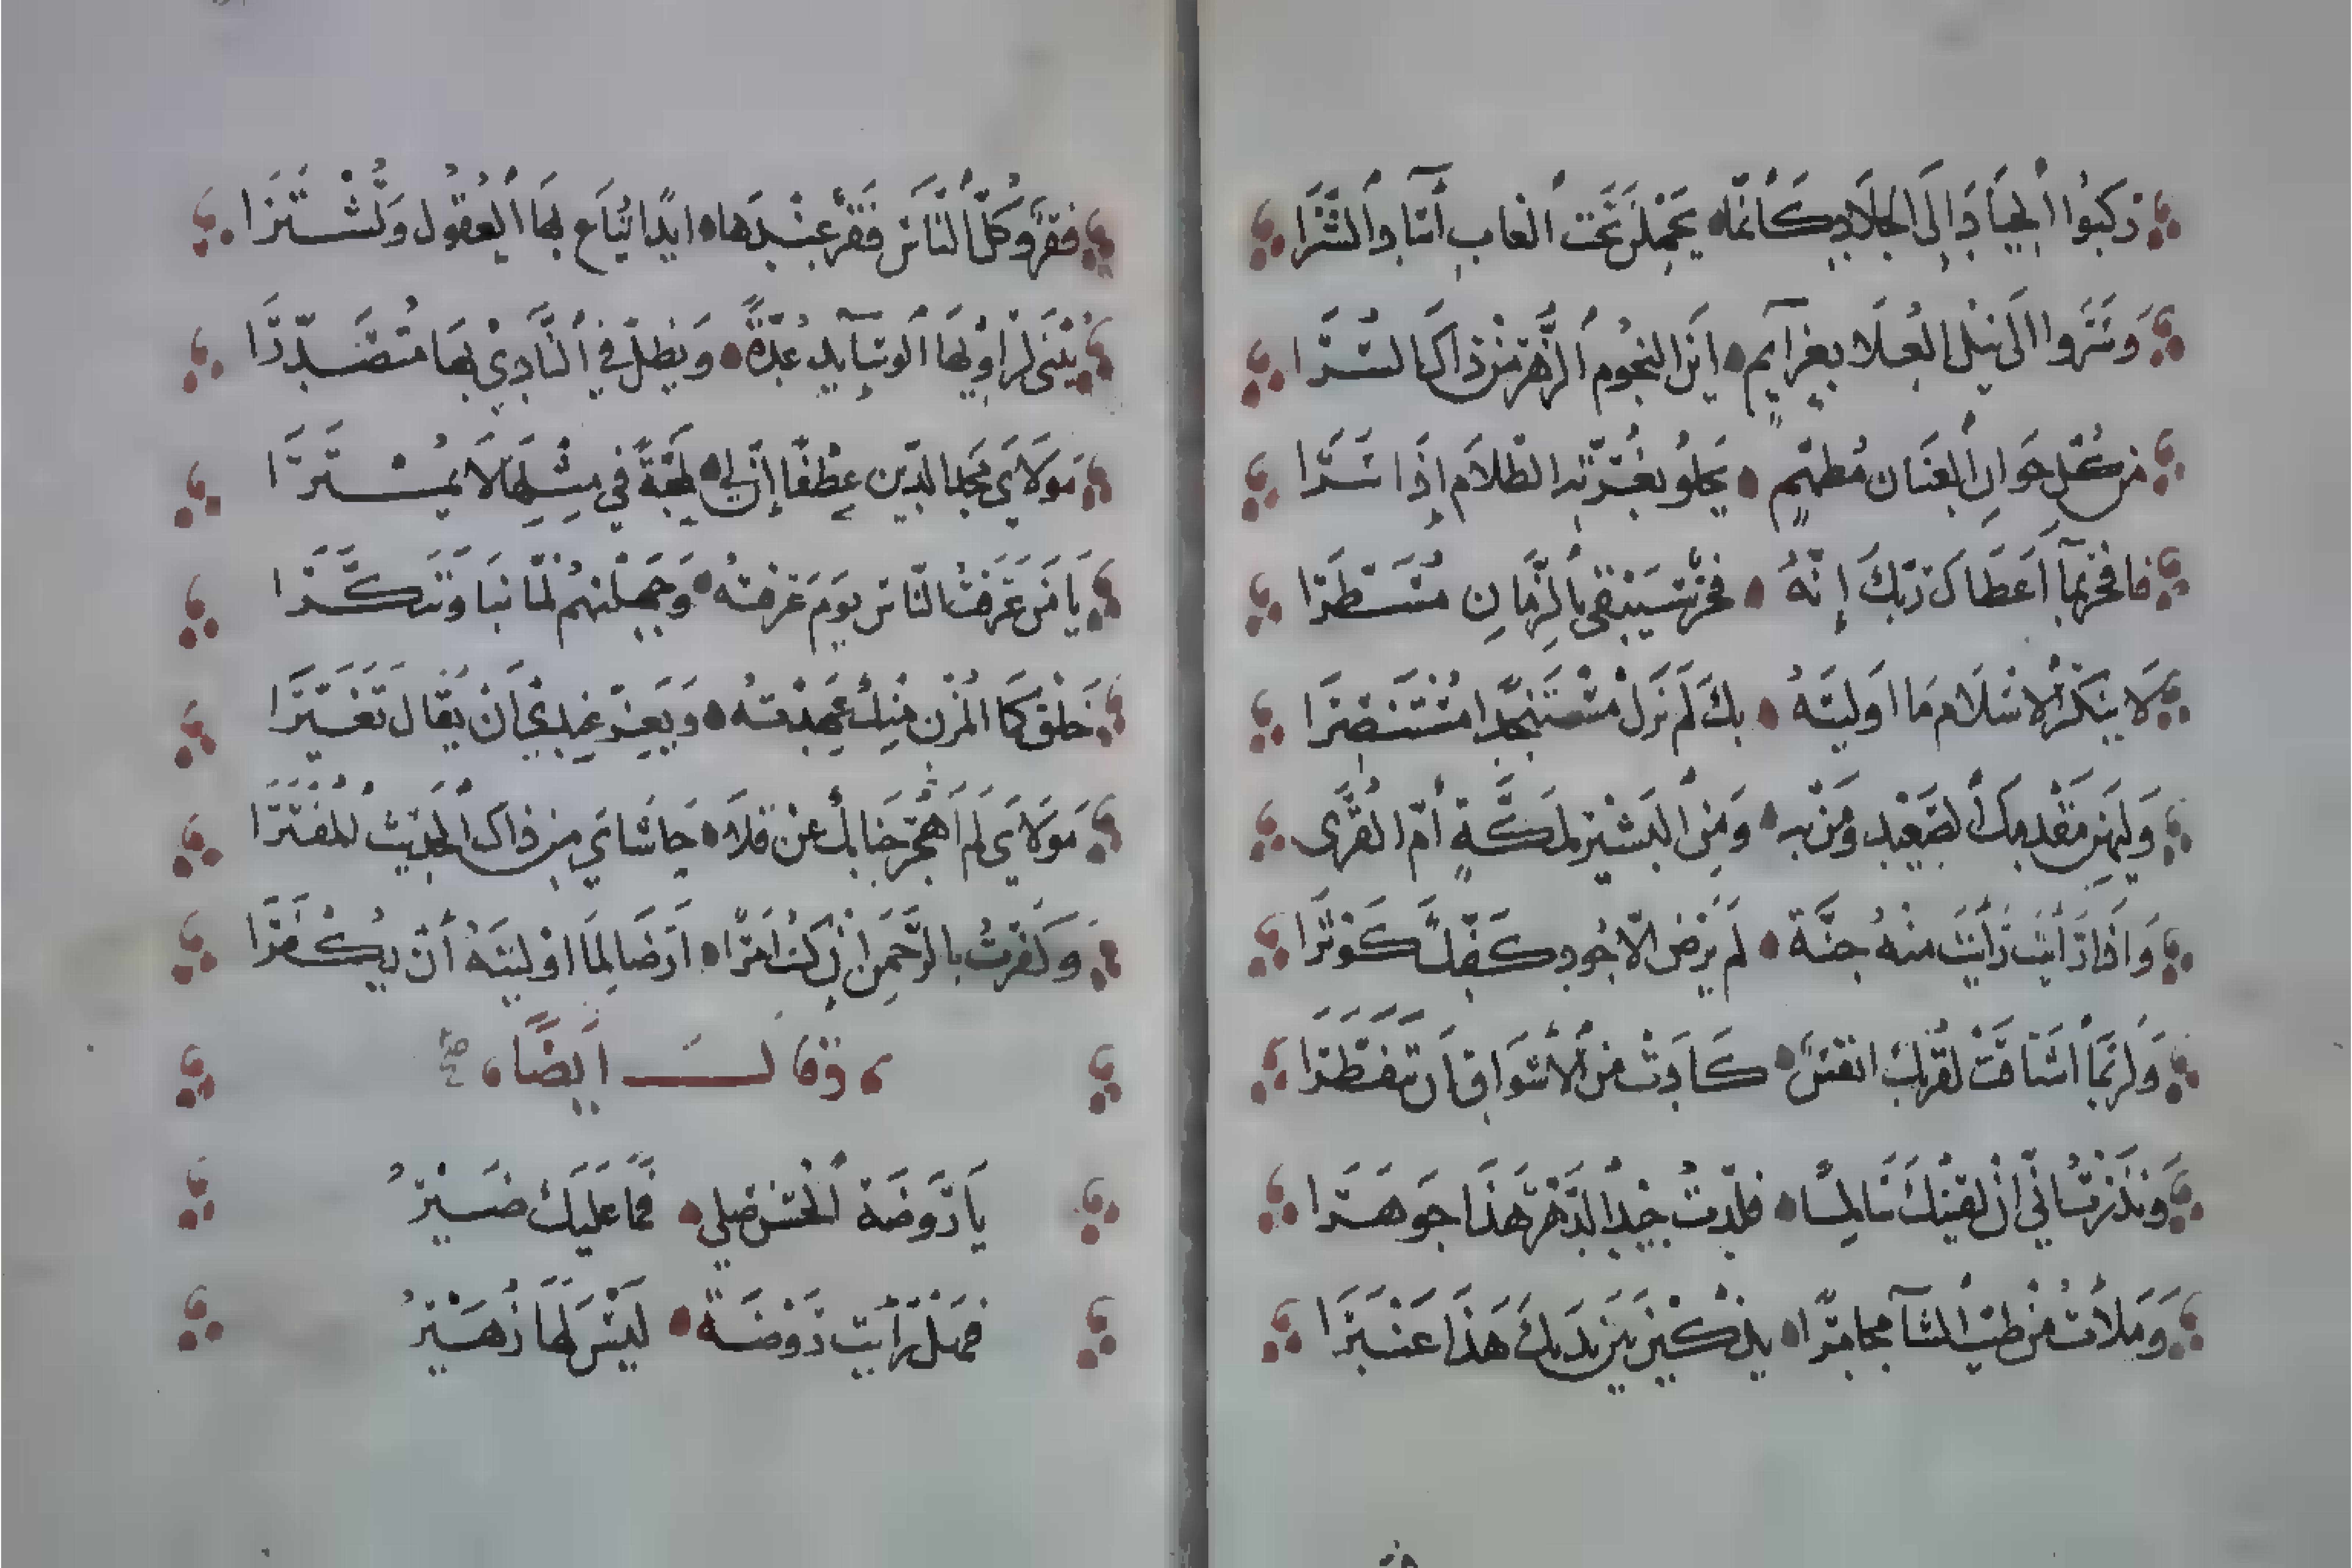 رَكَبُوا الجِيَادَ إِلَى الجِلَادِ كَأَنَّمَا يَحْمِلْنَ تَحْتَ الغَابِ آسَادَ الشَّرَا
وَسَرَوا الَى نَيْلِ العُلَا بِعَزَآيِمٍ اَيْنَ النجُوم الزُّهْر مِنْ ذاكَ السُّرَا
مِن كُلِّ خَوارِ العِنَان مُطهّمٍ يَجْلُو بِغُرّتهِ الظَّلَامَ إذَا سَرَا
فَافخَرْ بمَا أَعَطَاكَ رَبُّكَ إِنَّهُ فَخْرٌ سَيَبْقَى بالزّمَانِ مُسَطَرَا
لَا يُنكرُ الاسْلَام مَا اَوليتَهُ بِكَ لَم يَزَلْ مُسْتَنجِدًا مُسْتَنْصِرَا
وَلِيَهْنِ مَقْدمكَ الصَّعِيْد وَمَنْ بهِ وَمَنِ البَشيرُ لمَكَّةٍ أُمّ القُرَى
وَاذَا رَأَيتَ رَأيتَ منْهُ جنَّةً لَم يَرْضَ الّا جُودِ كَفِّكَ كَوْثَرَا
وَلَرُبَّمَا اشْتَاقَتْ لقُرْبِكَ انفسٌ كَادَتْ مِنَ الأشوَاقِ اَن تَتَفطَّرَا
وَنذَرْتُ انِّي إنْ لَقِيْتُكَ سَالِمًا قلّدتُ جِيْدَ الدَّهْرِ هَذَا جَوهَرَا
وَمَلأتُ مِنْ طيْبِ الثنَآ مجَامِرًا يذْكِيْنَ بَيْنَ يَدَيكَ هَذَا عَنْبَرَا
فِقَرٌ وَكُلّ النَّاسِ فقرٌ عِنْدَهَا ابَدًا تُبَاع بهَا العُقُول وَتُشْتَرَا
يُثْنَى لِرَاوِيْهَا الوسَآيد عِدّةً وَيَظلّ في النَّادِيْ بهَا مُتَصَدِّرَا
مَولَايَ مَجْد الدِّين عِطْفًا إنَّ لِي لمَحَبَّةً في مِثْلِهَا لَا يُمْتَرَا
يَا مَن عَرَفتُ النّاسَ يَومَ عَرَفتُهُ وَجَهِلتهُم لَمَّا نبَا وَتَنَكَّرَا
خَلقٌ كمَا المُزْنِ مِنْكَ عَهِدْتُهُ وَيَعِزّ عِنْدِيْ أَنْ يُقَال تَغَيَّرَا
مَولَايَ لَم أَهْجُرْ جَنابَكَ عَنْ قلًا حَاشَايَ مِن ذاكَ الحَدِيث المُفتَرَا
وَكفَرتُ بالرَّحْمَنِ إِنْ كُنْتُ امرًا اَرضَا لِمَا اوْليتَهُ أَن يُكْفَرَا
وقالــ اَيضًا صح
يَا رَوضَةَ الحُسْنِ صِلي فَمَا عَلَيكَ ضَيْرُ
فهَلْ رَأَيت رَوْضَةً لَيْسَ لهَا زُهَيْرُ